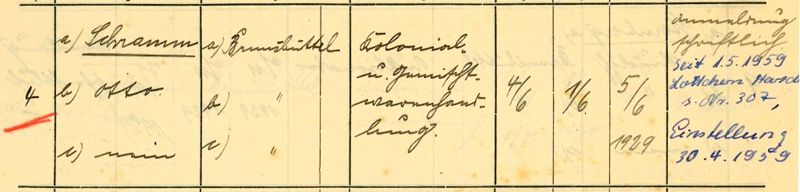 4
a) Schramm
b) Otto
c) nein
a) Brunsbüttel
b) "
c) "
Kolonial-
u. Gemischt-
warenhand-
lung.
4/6
1/6
5/6
1929
Anmeldung
schriftlich
Seit 1.5.1959
Lottchen
s. Nr. 307,
Einstellung
30.4.1959